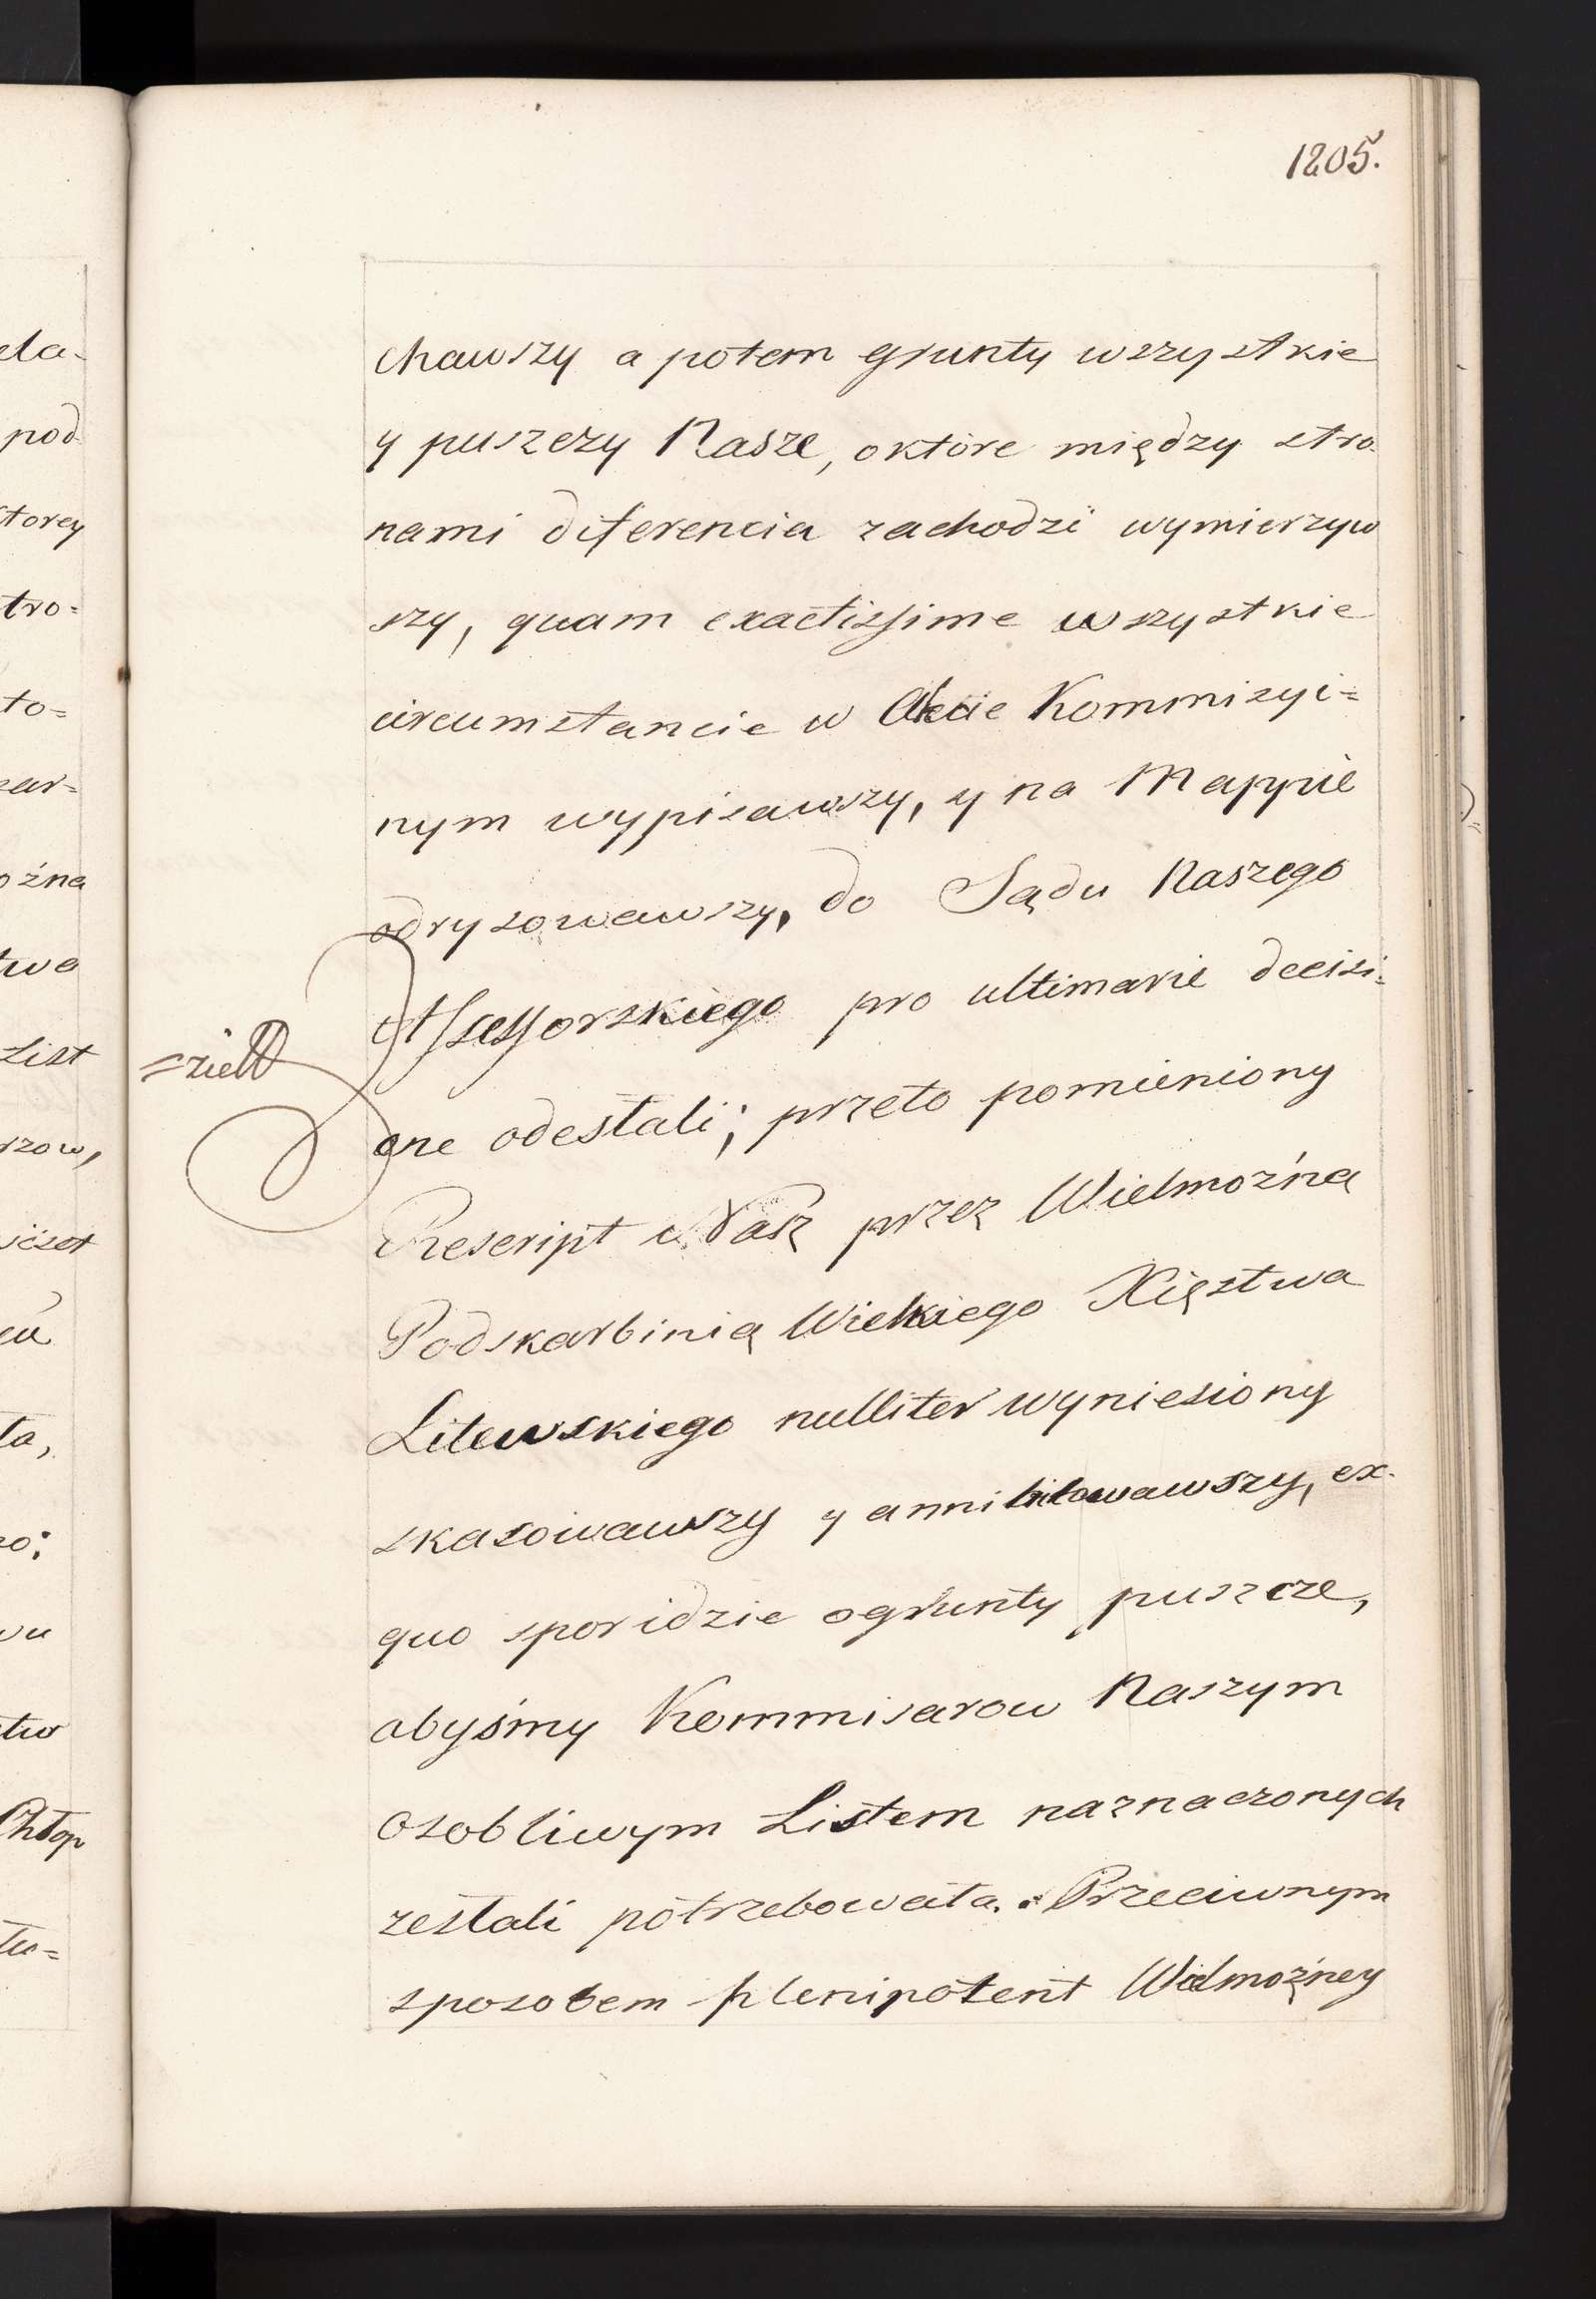 1205.
chawszy a potem grunty wszystkie
y puszczy Nasze, o które między stro-
nami diferencia zachodzi wymierzyw
szy, quam exactissime wszystkie
circumstancie w Akcie Kommisyi=
nym wypisawszy, y na Mappie
odrysowawszy, do Sądu Naszego
Assessorskiego pro ultimarie decisi-
one odesłali; przeto pomieniony
Rescript Nasz przez Wielmożną
Podskarbinią Wielkiego Xięstwa
Litewskiego nulliter wyniesiony
skasowawszy y annihilowawszy, ex-
quo spor idzie o grunty puszcze,
abyśmy Kommisarow Naszym
osobliwym Listem naznaczonych
zesłali potrzebowała. Przeciwnym
sposobem plenipotent Wielmożney
ela-
pod
torey
tro=
to=
zar=
ożna
twa
List
rzow,
ła,
zo:
wu
Chłop
tu=